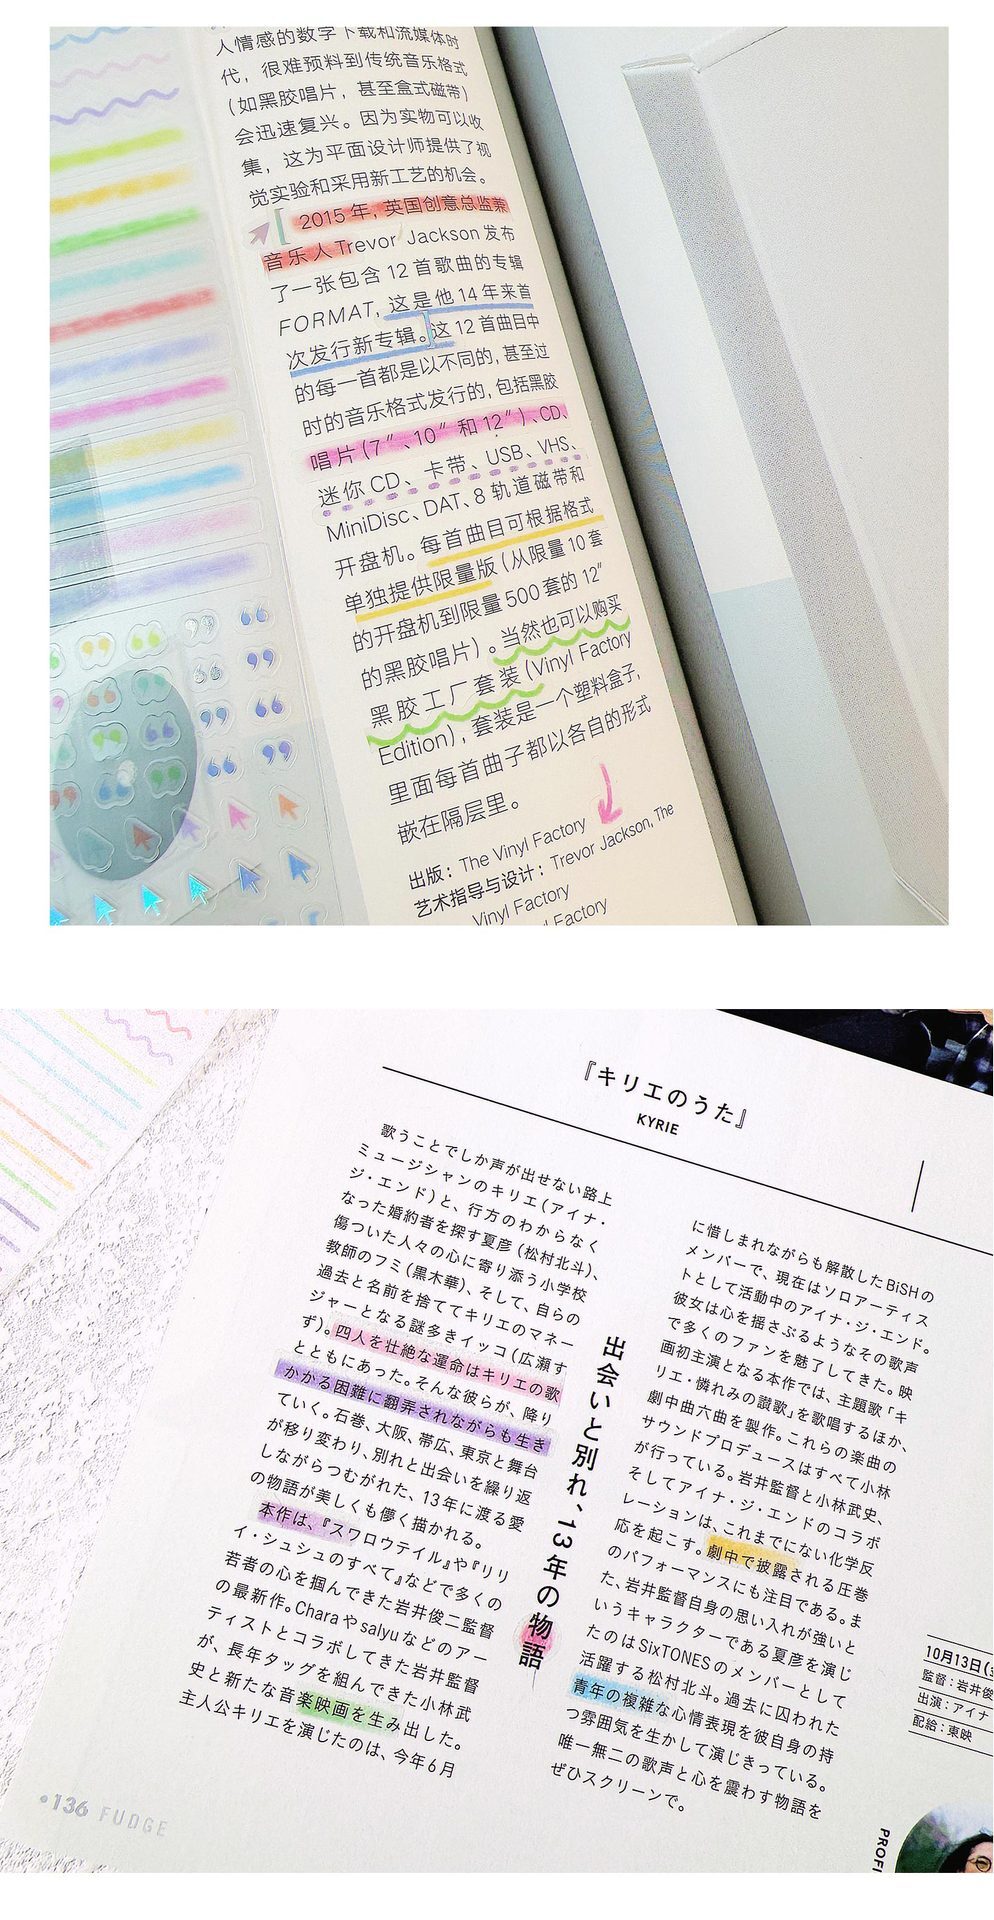 人情感的数字下载和流媒体时
代，很难预料到传统音乐格式
（如黑胶唱片，甚至盒式磁带）
会迅速复兴。因为实物可以收
集，这为平面设计师提供了视
觉实验和采用新工艺的机会。
2015年，英国创意总监兼
音乐人Trevor Jackson发布
了一张包含12首歌曲的专辑
FORMAT，这是他14年来首
次发行新专辑。这12首曲目中
的每一首都是以不同的，甚至过
时的音乐格式发行的，包括黑胶
唱片（7″、10″和12″）、CD、
迷你CD、卡带、USB、VHS、
MiniDisc、DAT、8轨道磁带和
开盘机。每首曲目可根据格式
单独提供限量版（从限量10套
的开盘机到限量500套的12″
的黑胶唱片）。当然也可以购买
黑胶工厂套装（Vinyl Factory
Edition），套装是一个塑料盒子，
里面每首曲子都以各自的形式
嵌在隔层里。
出版：The Vinyl Factory
艺术指导与设计：Trevor Jackson, The
Vinyl Factory
Factory
『キリエのうた』
KYRIE
歌うことでしか声が出せない路上
ミュージシャンのキリエ（アイナ・
ジ・エンド）と、行方のわからなく
なった婚約者を探す夏彦（松村北斗）、
傷ついた人々の心に寄り添う小学校
教師のフミ（黒木華）、そして、自らの
過去と名前を捨ててキリエのマネー
ジャーとなる謎多きイッコ（広瀬す
ず）。四人を壮絶な運命はキリエの歌
とともにあった。そんな彼らが、降り
かかる困難に翻弄されながらも生き
ていく。石巻、大阪、帯広、東京と舞台
が移り変わり、別れと出会いを繰り返
しながらつむがれた、13年に渡る愛
の物語が美しくも儚く描かれる。
本作は、『スワロウテイル』や『リリ
イ・シュシュのすべて』などで多くの
若者の心を掴んできた岩井俊二監督
の最新作。Charaやsalyuなどのアー
ティストとコラボしてきた岩井監督
が、長年タッグを組んできた小林武
史と新たな音楽映画を生み出した。
主人公キリエを演じたのは、今年6月
出会いと別れ、13年の物語
に惜しまれながらも解散したBiSHの
メンバーで、現在はソロアーティス
トとして活動中のアイナ・ジ・エンド。
彼女は心を揺さぶるようなその歌声
で多くのファンを魅了してきた。映
画初主演となる本作では、主題歌「キ
リエ・憐れみの讃歌」を歌唱するほか、
劇中曲六曲を製作。これらの楽曲の
サウンドプロデュースはすべて小林
が行っている。岩井監督と小林武史、
そしてアイナ・ジ・エンドのコラボ
レーションは、これまでにない化学反
応を起こす。劇中で披露される圧巻
のパフォーマンスにも注目である。ま
た、岩井監督自身の思い入れが強いと
いうキャラクターである夏彦を演じ
たのはSixTONESのメンバーとして
活躍する松村北斗。過去に囚われた
青年の複雑な心情表現を彼自身の持
つ雰囲気を生かして演じきっている。
唯一無二の歌声と心を震わす物語を
ぜひスクリーンで。
10月13日
監督：岩井俊
出演：アイナ
配給：東映
PROFI
136 FUDGE